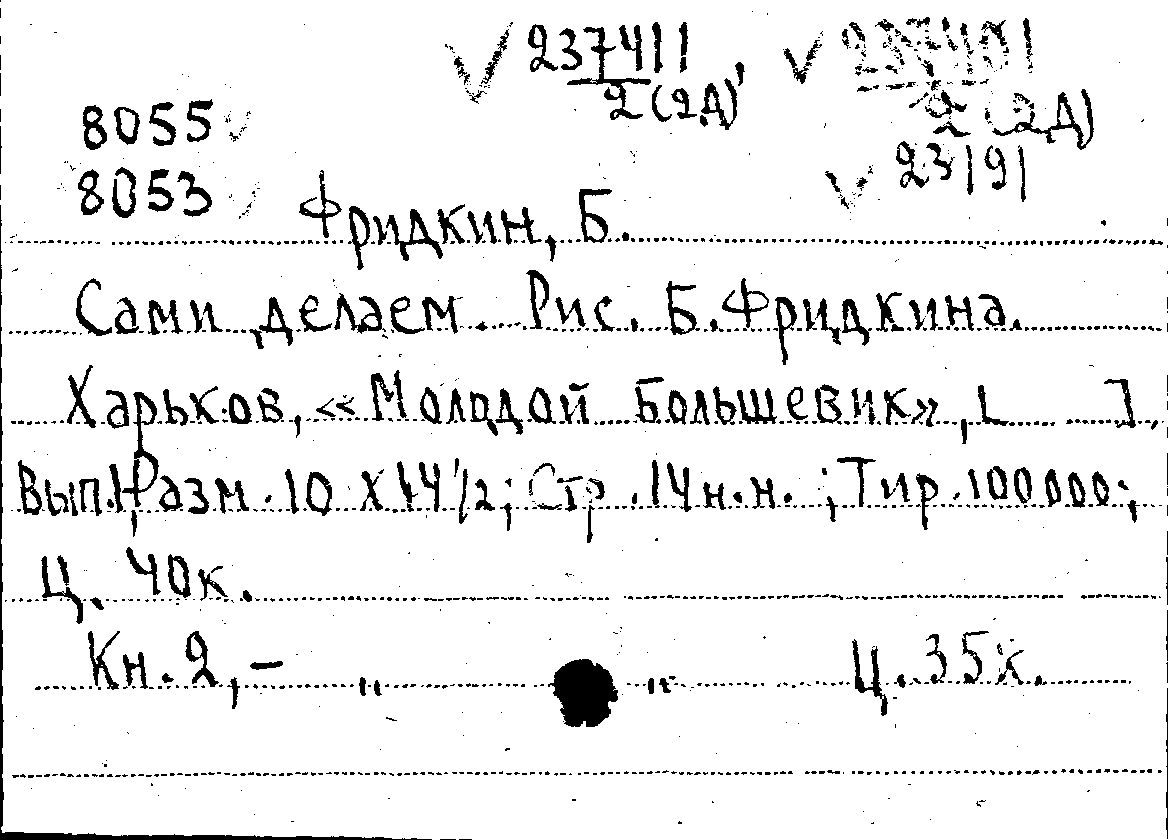 237411 , 237401
2 (2д) 2 (2д)
8055
23191
8053
Фридкин, Б.
Сами делаем. Рис. Б. Фридкина.
Харьков, «Молодой Большевик», [ ].
Вып.1, Разм. 10 X 14 1/2; Стр. 14 н.н.; Тир. 100000;
Ц. 40к.
Кн. 2, – " " Ц. 35к.